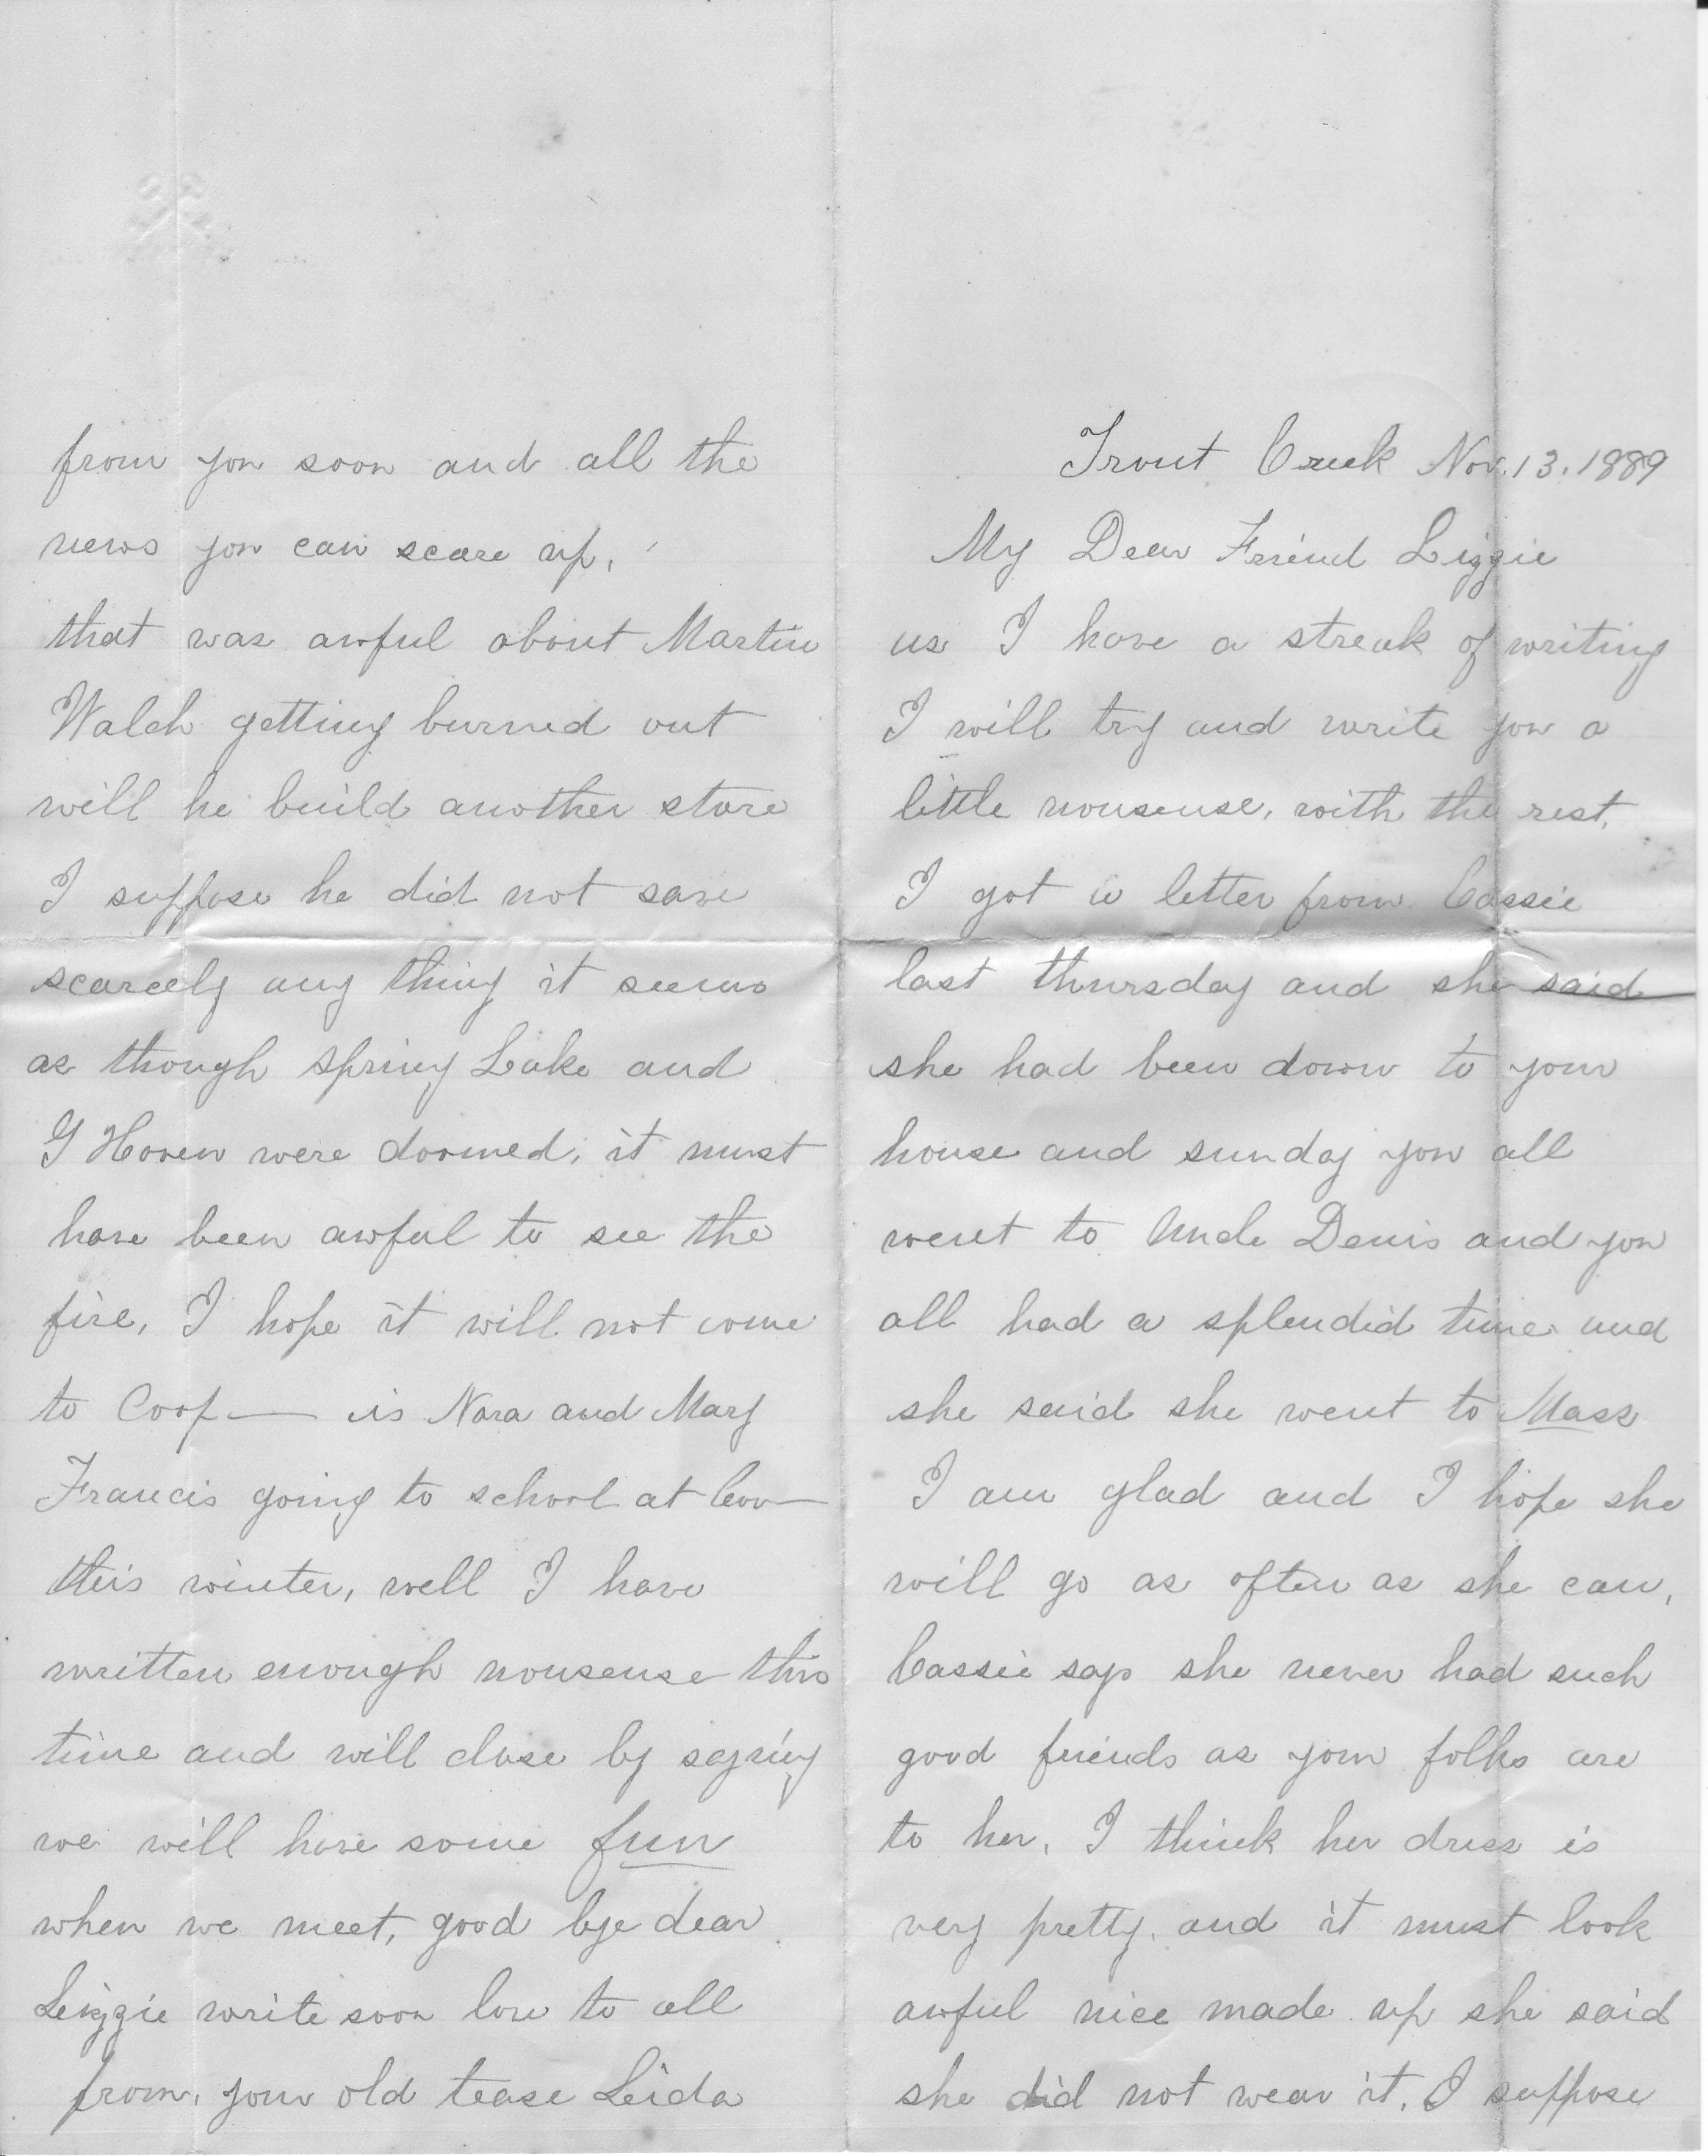 Trout Creek Nov. 13. 1889
My Dear Friend Lizzie
as I have a streak of writing
I will try and write you a
little nonsense, with the rest.
I got a letter from Cassie
last thursday and she said
she had been down to your
house and sunday you all
went to Uncle Denis and you
all had a splendid time and
she said she went to Mass
I am glad and I hope she
will go as often as she can,
Cassie says she never had such
good friends as your folks are
to her, I think her dress is
very pretty, and it must look
awful nice made up she said
she did not wear it. I suppose
from you soon and all the
news you can scare up,
that was awful about Martin
Walch getting burned out
will he build another store
I suppose he did not save
scarcely any thing it seems
as though spring Lake and
G Haven were doomed, it must
have been awful to see the
fire, I hope it will not come
to Coop— is Nora and Mary
Francis going to school at Coo—
this winter, well I have
written enough nonsense this
time and will close by saying
we will have some fun
when we meet, good bye dear
Lizzie write soon love to all
from, your old tease Leida